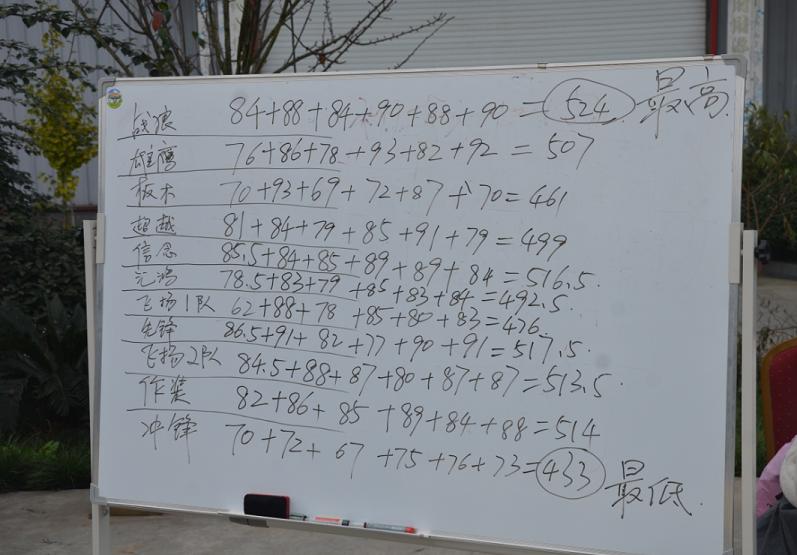 战狼 84+88+84+90+88+90=524 最高
雄鹰 76+86+78+93+82+92=507
板木 70+93+69+72+87+70=461
超越 81+84+79+85+91+79=499
信念 85.5+84+85+89+89+84=516.5.
78.5+83+79+85+83+84=492.5.
飞扬1队 62+88+78+85+80+83=476.
先锋 86.5+91+82+77+90+91=517.5.
飞扬2队 84.5+88+87+80+87+87=513.5.
82+86+85+89+84+88=514
冲锋 70+72+67+75+76+73=433 最低.